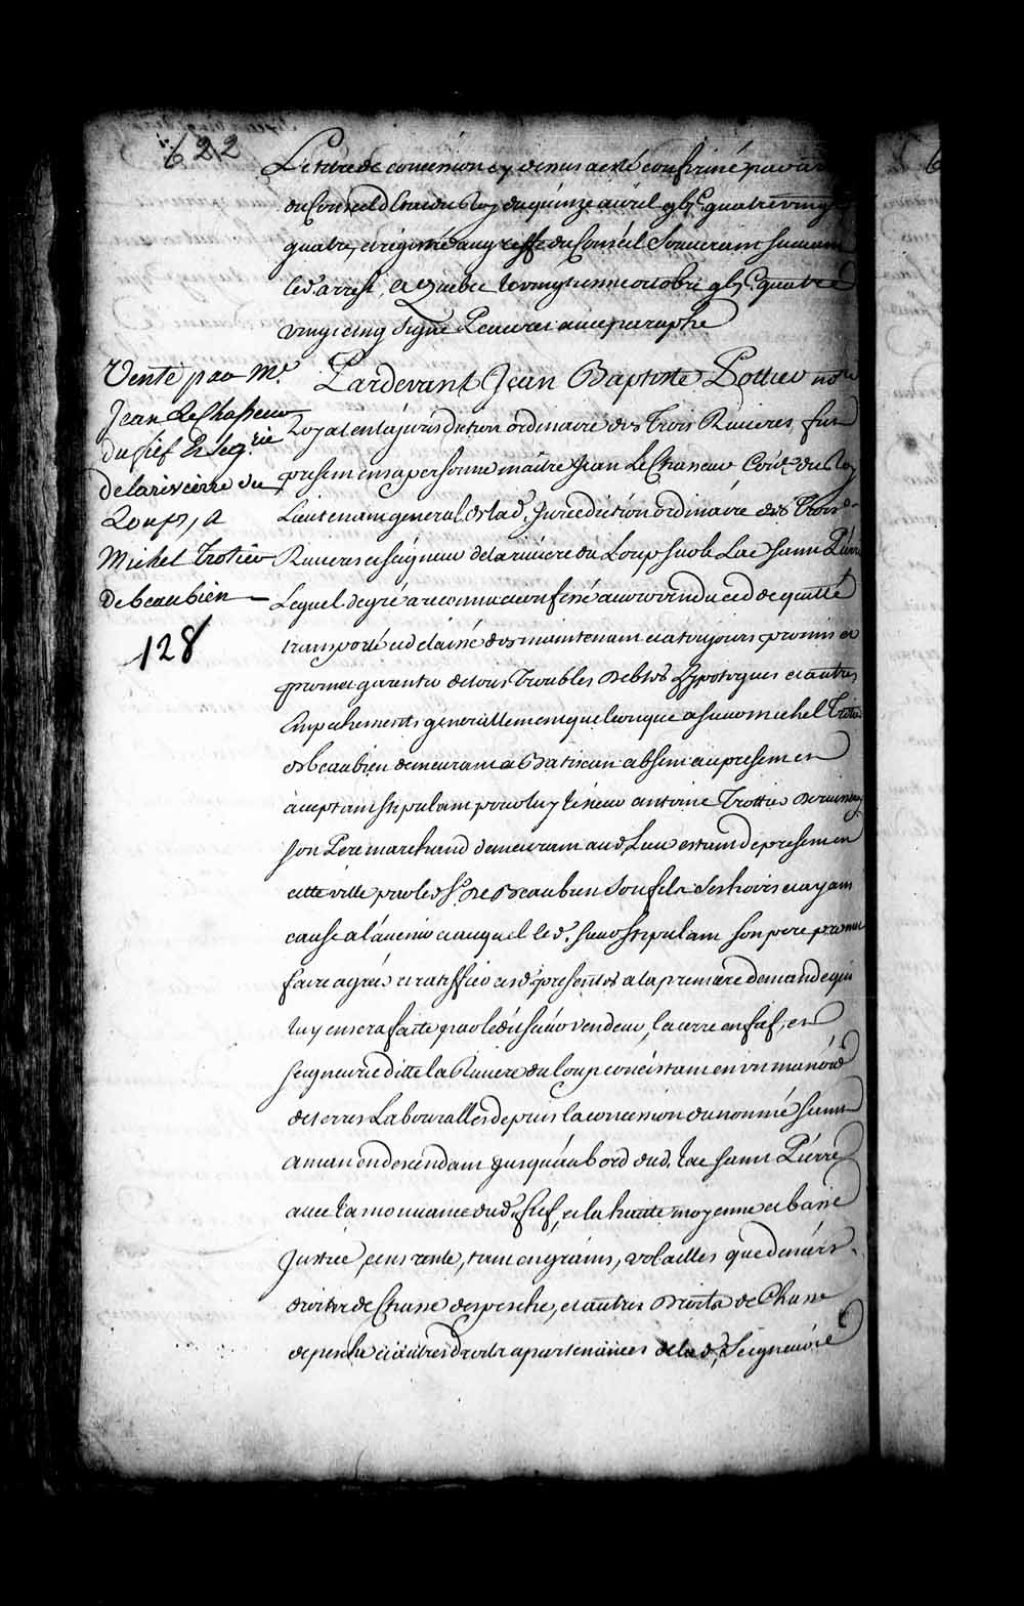 622
Le titre de concession cy dessus a esté confirmé par
du Conseil d'Estat du Roy du quinze avril gbj.C quatre vingt
quatre, et registré au greffe du Conseil Souverain suivant
led. arrest, a Quebec le vingtienne octobre gbj.C quatre
vingt cinq Signé Peuvret avec paraphe
Vente par Me.
Jean Le Chasseur
du fief et Seg.rie
de la riviere du
Loup, a
Michel Trotier
de beaubien
128
Pardevant Jean Baptiste Pottier no.re
Royal en la jurisdiction ordinaire des Trois Rivieres, fut
present en sa personne maître Jean Le Chasseur Con.er du Roy
Lieutenant general de lad. Jurisdiction ordinaire des Trois
Rivieres et seigneur de la riviere du Loup sur le Lac Saint Pierre
Lequel de gré a reconnu et confessé avoir vendu cedde quitté
transporté et delaissé des maintenant et a toujours promis et
promet garentir de tous Troubles debtes hypoteques et autres
Empechements generallement quelconque a sieur michel Trotier
de beaubien demeurant a Batiscan absent au present et
acceptant stipulant pour luy le sieur antoine Trottier
son Pere marchand demeurant aud. Lieu estant de present en
cette ville pour led. Sr. De Beaubien son fils ses hoirs et ayant
cause a l'avenir et auquel led. sieur stipulant son pere promet
faire agréer et ratiffier cesd. presentes a la premiere demande qui
luy en sera faite par ledit sieur vendeur, la terre en fief, et
seigneurie ditte la Riviere du loup concistant en un manoir
de terres Labouralles depuis la concession du nommé
aman en descendant jusqu'au bord dud. lac saint Pierre
avec la mouvance dud. fief, et la haute moyenne et basse
Justice, cens rente, tant en grains, volailles que deniers.
droit de Chasse de pesche, et autres Droits de Chasse
de pesche et autres droits apartenances de lad. Seigneurie